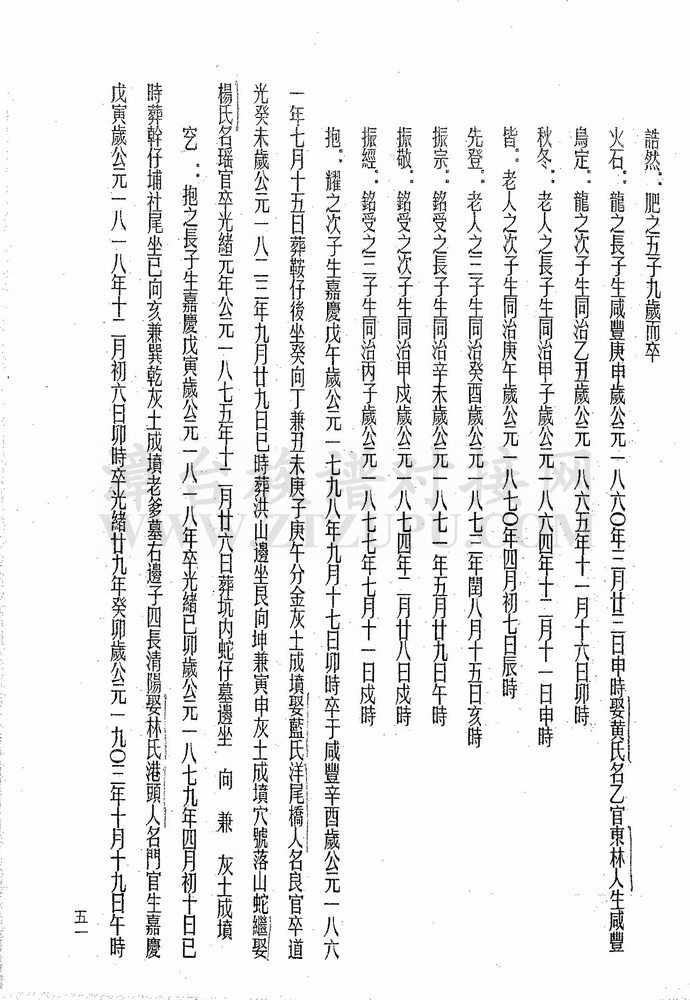 誥然：肥之五子九歲而卒
火石：龍之長子生咸豐庚申歲公元一八六〇年三月廿三日申時娶黄氏名乙官東林人生咸豐
鳥定：龍之次子生同治乙丑歲公元一八六五年十一月十六日卯時
秋冬：老人之長子生同治甲子歲公元一八六四年十二月十一日申時
皆：老人之次子生同治庚午歲公元一八七〇年四月初七日辰時
先登：老人之三子生同治癸酉歲公元一八七三年閏八月十五日亥時
振宗：銘受之長子生同治辛未歲公元一八七一年五月廿七日午時
振敬：銘受之次子生同治甲戍歲公元一八七四年二月廿八日戍時
振經：銘受之三子生同治丙子歲公元一八七七年七月十一日戍時
抱：耀之次子生嘉慶戊午歲公元一七九八年九月十七日卯時卒于咸豐辛酉歲公元一八六
一年七月十五日葬鞍仔後坐癸向丁兼丑未庚子庚午分金灰土成墳娶藍氏洋尾橋人名良官卒道
光癸未歲公元一八二三年九月廿九日巳時葬洪山邊坐艮向坤兼寅申灰土成墳穴號落山蛇繼娶
楊氏名瑶官卒光緒元年公元一八七五年十二月廿六日葬坑内蛇仔墓邊坐　向　兼　灰土成墳
穵：抱之長子生嘉慶戊寅歲公元一八一八年卒光緒已卯歲公元一八七九年四月初十日巳
時葬幹仔埔社尾坐巳向亥兼巽乾灰土成墳老爹墓右邊子四長清陽娶林氏港頭人名門官生嘉慶
戊寅歲公元一八一八年十二月初六日卯時卒光緒廿九年癸卯歲公元一九〇三年十月十九日午時
五一
章台族譜对接网
WWW.ZTZUPU.COM